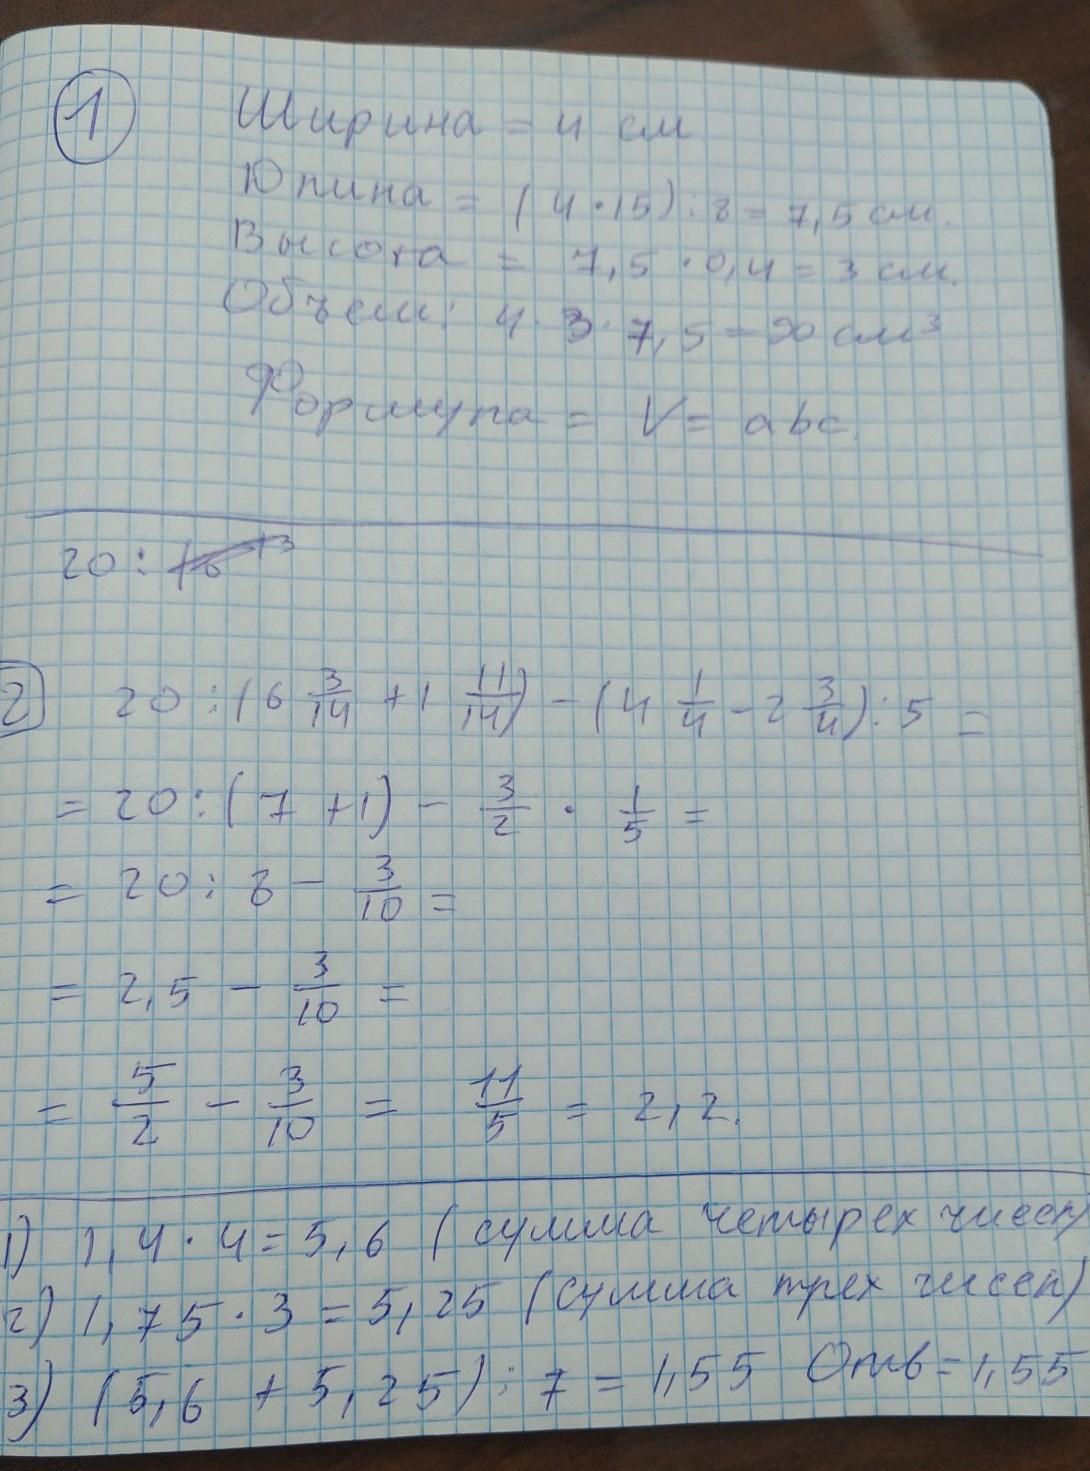 1 Ширина = 4 см
Длина = (4·15):8 = 7,5 см.
Высота = 7,5·0,4 = 3 см.
Объем: 4·3·7,5 = 90 см³
Формула = V = abc.
20:
2 20:(6 3/14 + 1 11/14) - (4 1/4 - 2 3/4):5 =
= 20:(7+1) - 3/2 · 1/5 =
= 20:8 - 3/10 =
= 2,5 - 3/10 =
= 5/2 - 3/10 = 11/5 = 2,2.
1) 1,4·4 = 5,6 (сумма четырех чисел)
2) 1,75·3 = 5,25 (сумма трех чисел)
3) (5,6 + 5,25):7 = 1,55 Отв = 1,55